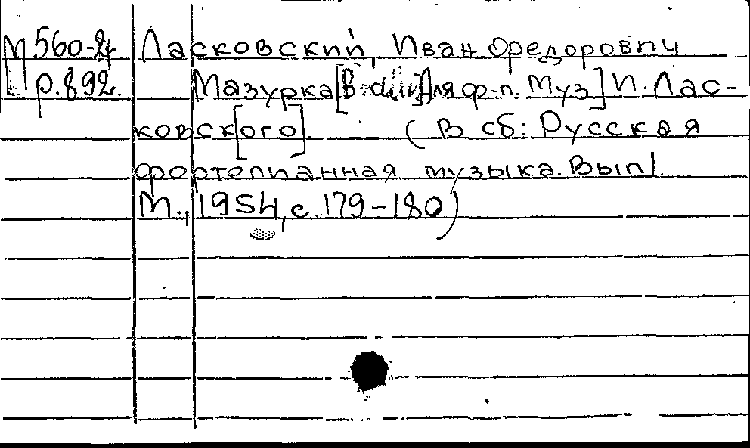 М 560-24 Ласковский, Иван Федорович
р.892. Мазурка [B-dur] Для ф-п. Муз] И. Лас-
ковск[ого]. (В сб: Русская
фортепианная музыка. Вып I
М., 1954, с. 179-180)